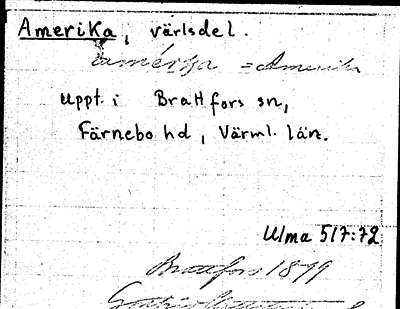 Amerika, värlsdel.
amérka = Amerika
uppt. i Brattfors sn,
Färnebo hd, Värml. län.
Ulma 517:72
Brattfors 1899